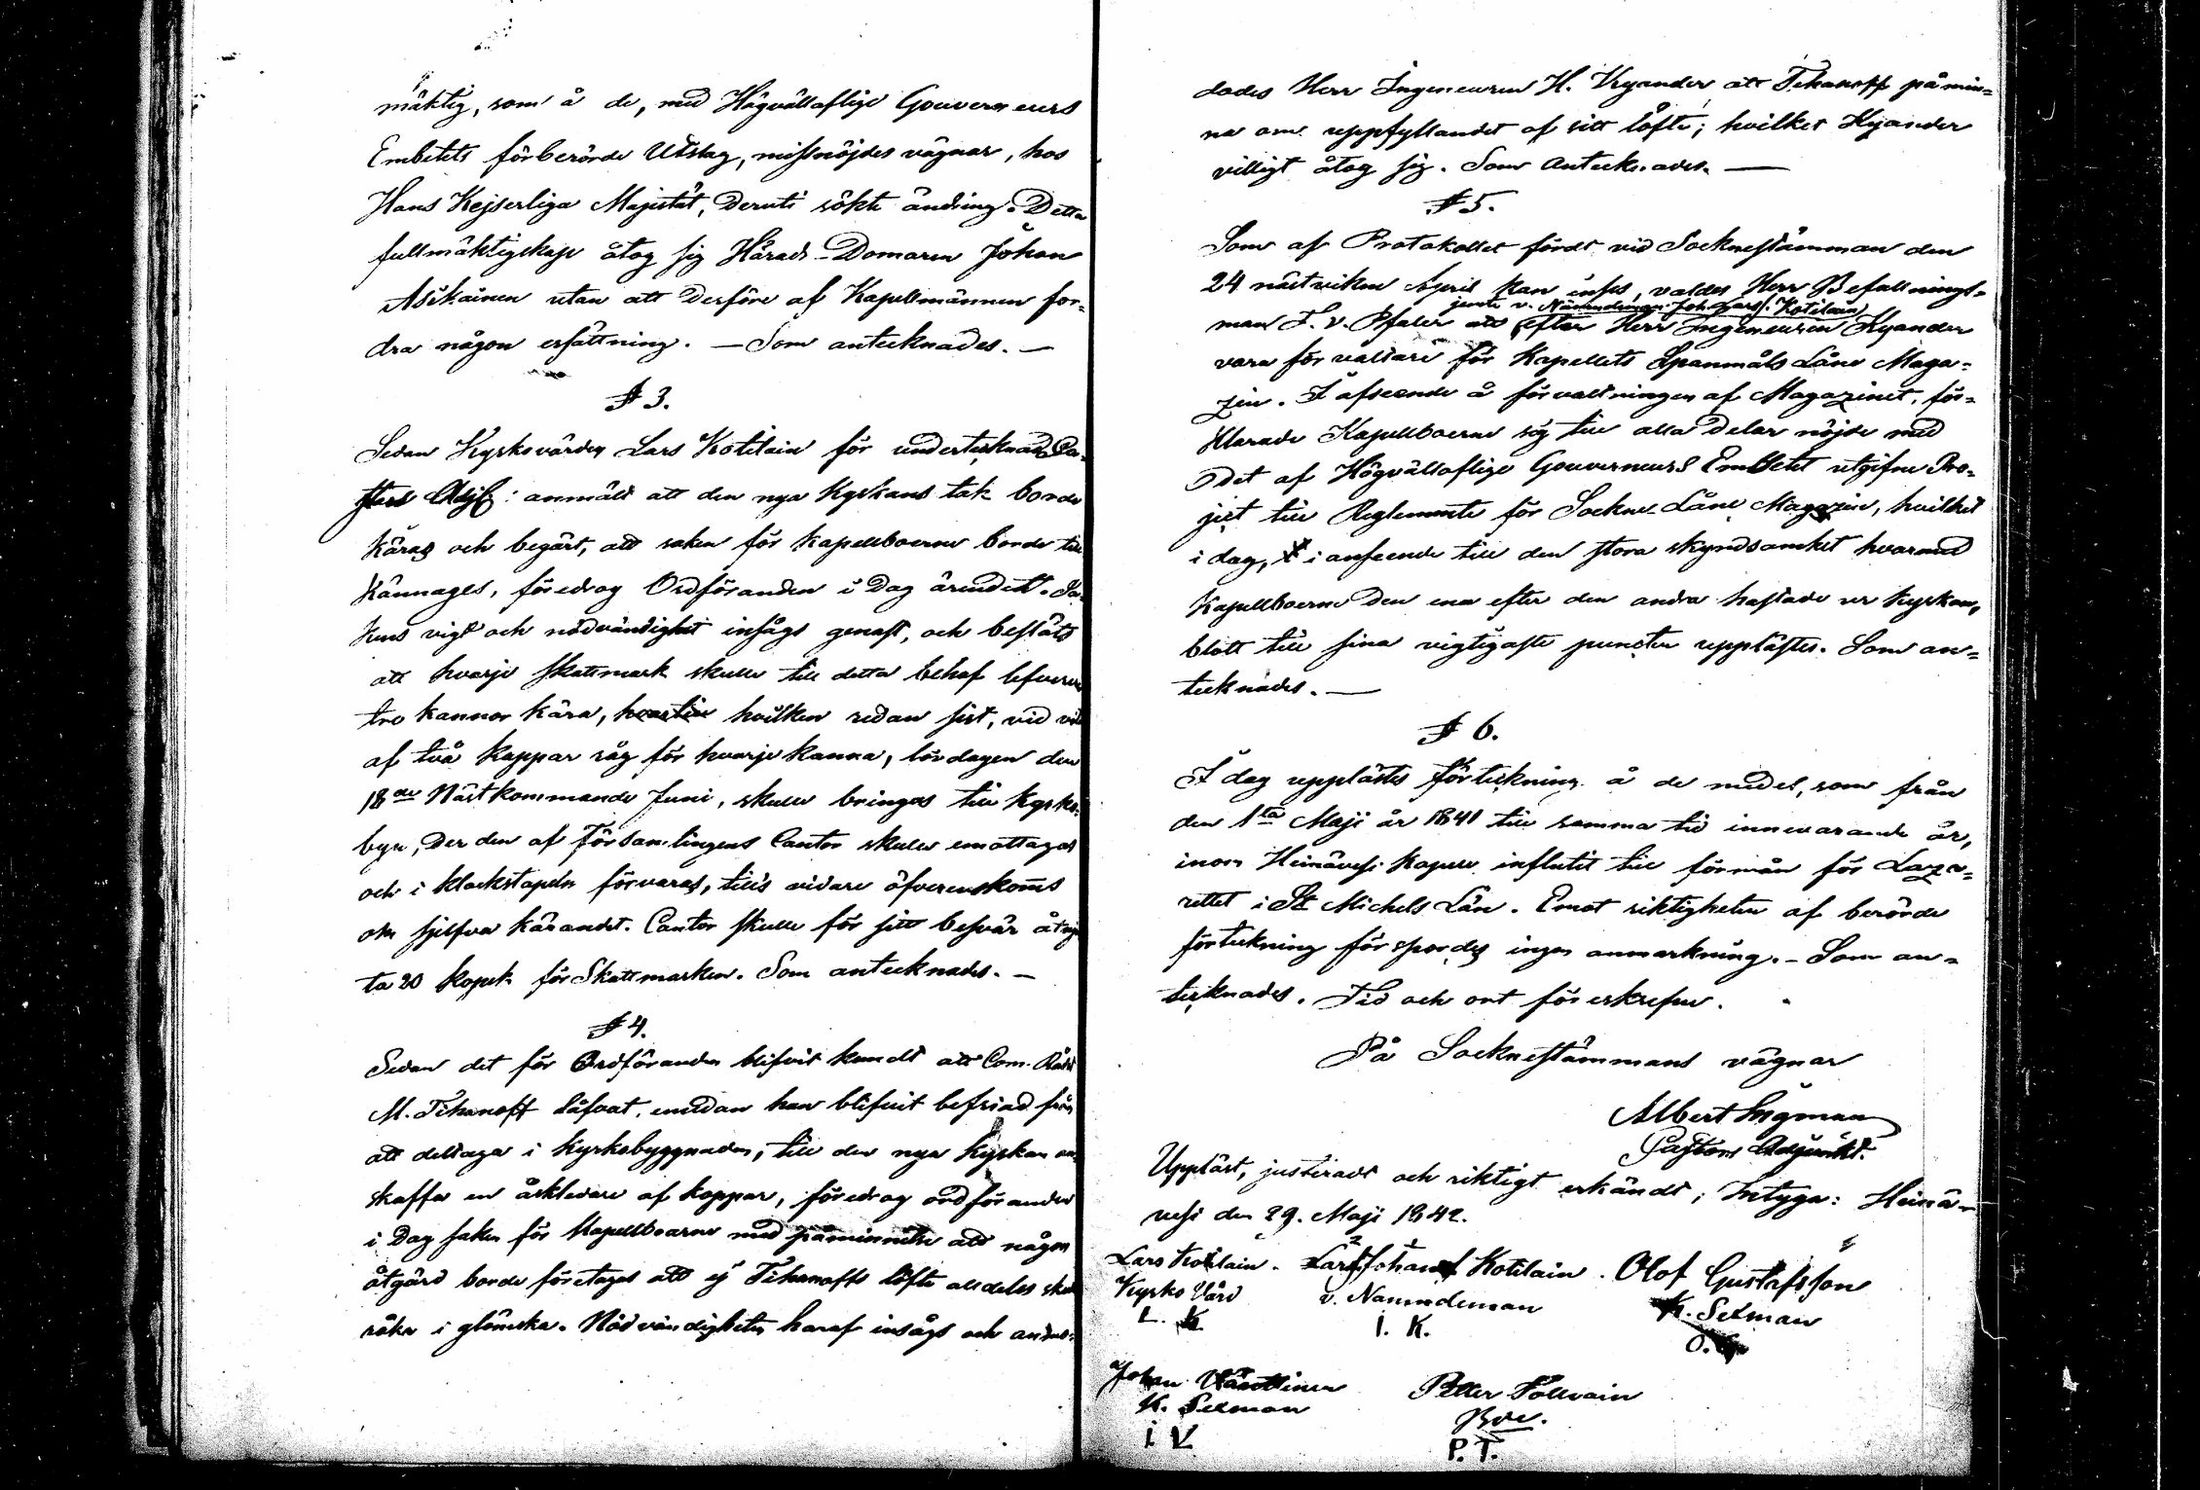 mäktig, som å de, med Högvälloflige Gouverneurs
Embetets förberörde Utslag, missnöjdes vägnar, hos
Hans Kejserliga Majestät, deruti sökte ändring. Detta
fullmäktigskap åtog sig Härads-Domaren Johan
Asikainen utan att derföre af Kapellmännen for-
dra någon ersättning. — Som antecknades. —
§ 3.
Sedan Kyrkovärden Lars Kotilain för undertecknad Pa-
stors Adj: anmält att den nya Kyrkans tak borde
käras och begärt, att saken för kapellboerne borde till
kännages, föredrog Ordföranden i dag ärendet. Sa-
kens vigt och nödvändighet insågs genast, och beslöts
att hvarje skattmark skulle till detta behof lefverera
tre kannor kära, hvilken sedan sist, vid vite
af två kappar råg för hvarje kanna, lördagen den
18de Nästkommande Juni, skulle bringas till Kyrko-
byn, der den af Församlingens Cantor skulle emottagas
och i klockstapeln förvaras, tills vidare öfverenskoms
om sjelfva kärandet. Cantor skulle för sitt besvär åtnju-
ta 20 kopek för Skattmarken. Som antecknades. —
§ 4.
Sedan det för Ordföranden blifvit kundt att Com. Rådet
M. Tihanoff låfvat, emedan han blifvit befriad från
att deltaga i kyrkobyggnaden, till den nya kyrkan an-
skaffa en åskledare af koppar, föredrog ordföranden
i dag saken för Kapellboarne med påminnelse att någon
åtgärd borde företagas att ej Tihanoffs löfte alldeles skulle
råka i glömska. Nödvändigheten häraf insågs och anmo-
dades Herr Ingeneuren H. Kyander att Tihanoff påmin-
na om uppfyllandet af sitt löfte; hvilket Kyander
villigt åtog sig. Som antecknades. —
§ 5.
Som af Protokollet fördt vid Sockenstämman den
24 nästvikne April kan inses, valdes Herr Befallnings-
jemte v. Nämndeman Joh. Larss. Kotilain
man F. v. Pfaler att efter Herr Ingeneuren Kyander
vara förvaltare för Kapellets Spanmåls Låne Maga-
zin. I afseende å förvaltningen af Magazinet, för-
klarade Kapellboerne sig till alla delar nöjde med
det af Högvälloflige Gouverneurs Embetet utgifne Pro-
ject till Reglemente för Sockne-Låne Magazin, hvilket
i dag, i anseende till den stora skyndsamhet hvarmed
Kapellboerne den ena efter den andra hastade ur kyrkan,
blott till sina vigtigaste puncter upplästes. Som an-
tecknades. —
§ 6.
I dag upplästes förteckning å de medel, som från
den 1sta Maji år 1841 till samma tid innevarande år,
inom Heinävesi kapell influtit till förmån för Laza-
rettet i St Michels Län. Emot riktigheten af berörde
förteckning förspordes ingen anmärkning. — Som an-
tecknades. Tid och ort föreskrefne.
På Socknestämmans vägnar
Albert Ingman
Pastors Adjunkt.
Uppläst, justeradt och riktigt erkändt; Intyga: Heinä-
vesi den 29. Maji 1842.
Lars Kotilain. Lars Johan Kotilain. Olof Gustafsson
Kyrko Värd v. Nämndeman K. Sexman
L. K. I. K. O. G.
Johan Petter Tollvain
K. Sexman
I V P. T.